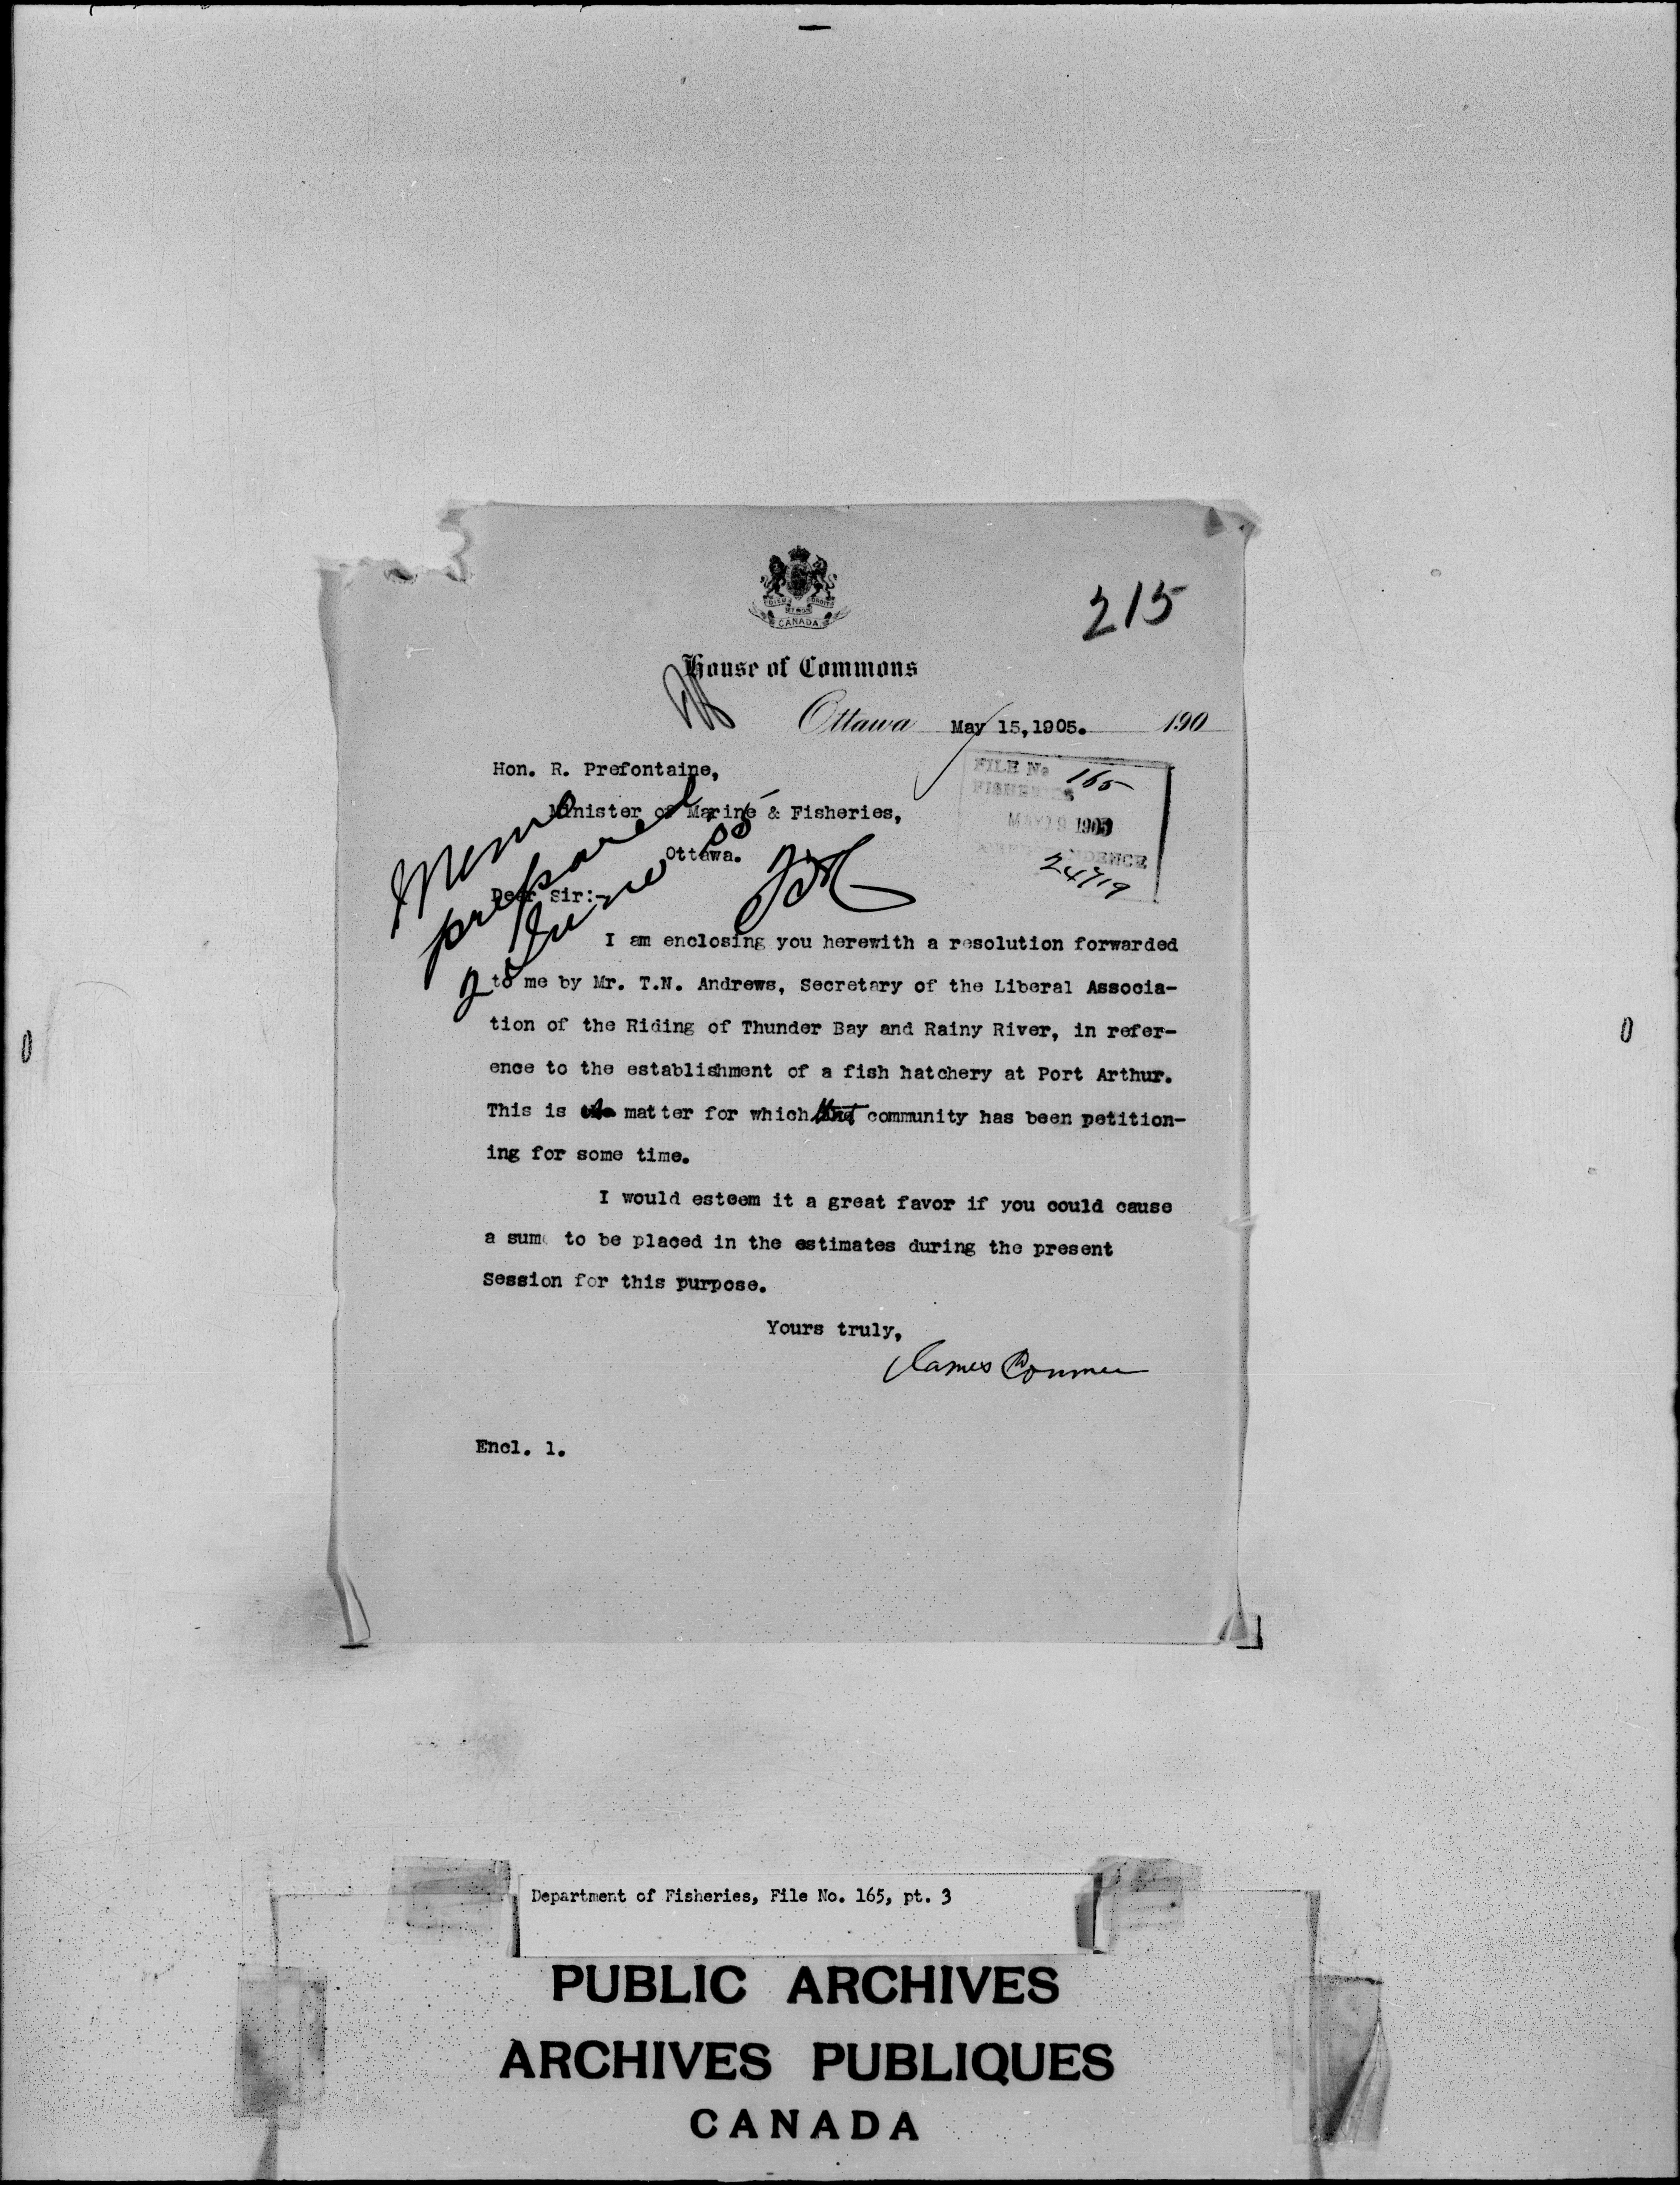 215
DIEU ET MON DROIT
CANADA
House of Commons
Ottawa May 15, 1905. 190
FILE No 165
FISHERIES
MAY 29 1905
CORRESPONDENCE
24719
Hon. R. Prefontaine,
Minister of Marine & Fisheries,
Ottawa.
Memo
prepared
2 June 05
Dear Sir:-
I am enclosing you herewith a resolution forwarded
to me by Mr. T.N. Andrews, Secretary of the Liberal Associa-
tion of the Riding of Thunder Bay and Rainy River, in refer-
ence to the establishment of a fish hatchery at Port Arthur.
This is a matter for which that community has been petition-
ing for some time.
I would esteem it a great favor if you could cause
a sum to be placed in the estimates during the present
Session for this purpose.
Yours truly,
James Conmee
Encl. 1.
Department of Fisheries, File No. 165, pt. 3
PUBLIC ARCHIVES
ARCHIVES PUBLIQUES
CANADA